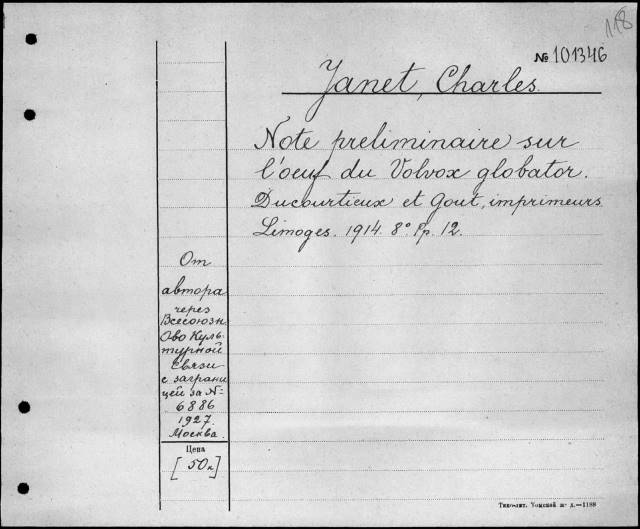 118
№ 101346
Janet, Charles.
Note preliminaire sur
l'oeuf du Volvox globator.
Ducourtieux et Gout, imprimeurs
Limoges. 1914. 8° Pp. 12.
От
автора
через
Всесоюзн.
Ово Куль-
турной
Связи
с заграни
цей за №
6886
1927.
Москва.
Цена
[50к]
Типо-лит. Томской ж. д.—1188